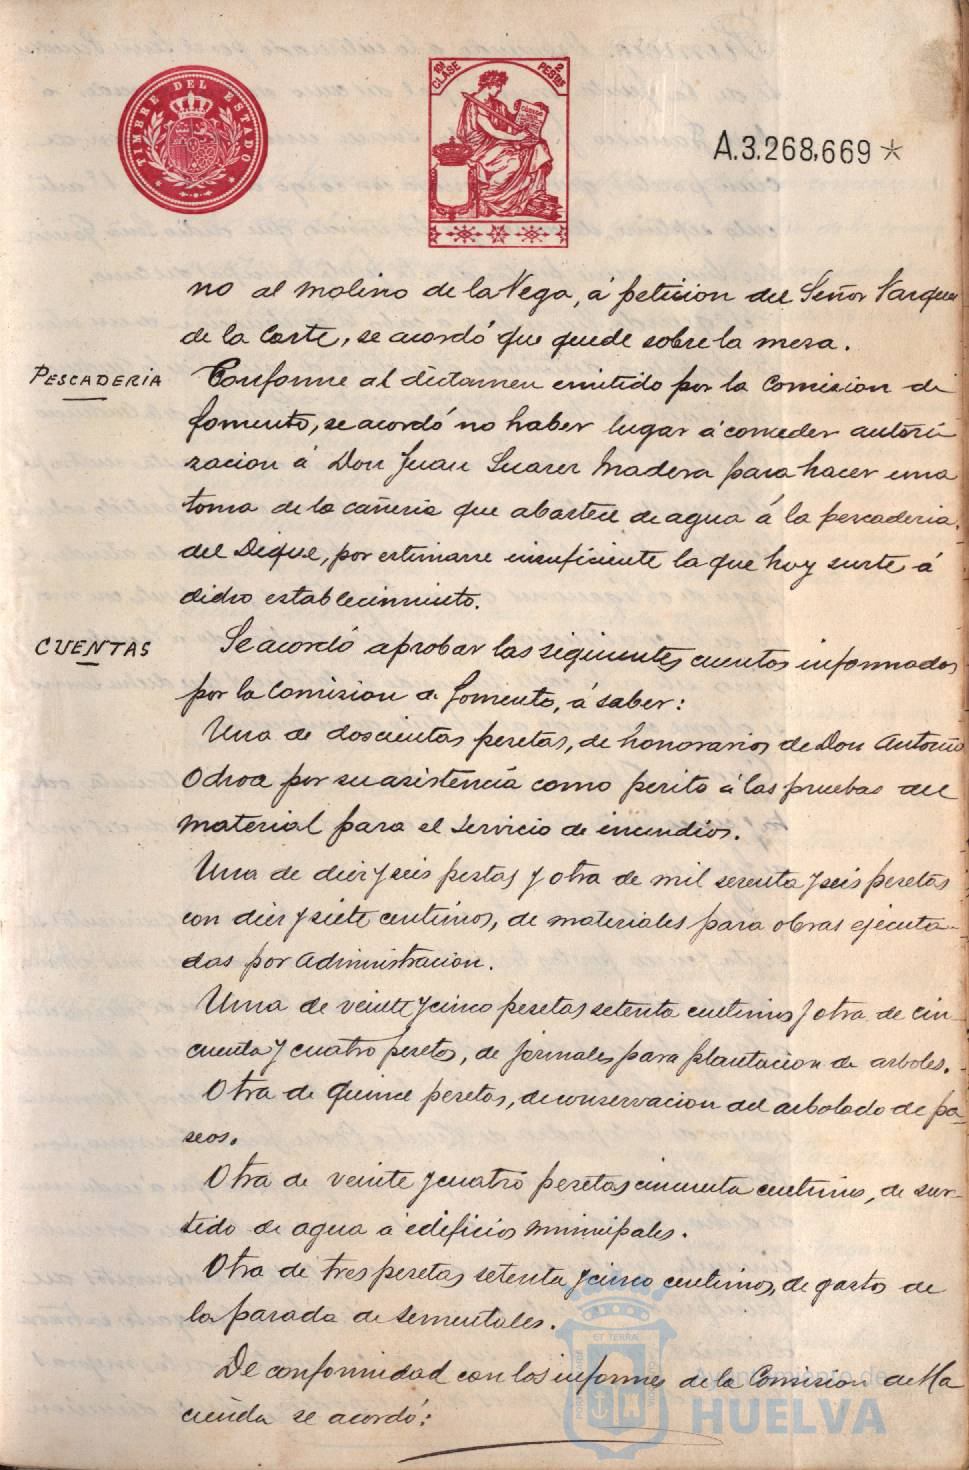 TIMBRE DEL ESTADO
10ª CLASE
2 PESETAS
A.3.268,669
no al Molino de la Vega, á peticion del Señor Vazquez
de la Corte, se acordó que quede sobre la mesa.
PESCADERIA
Conforme al dictamen emitido por la Comision de
fomento, se acordó no haber lugar á conceder autori
zacion á Don Juan Suarez Madera para hacer una
toma de la cañeria que abastece de agua á la pescaderia
del Dique, por estimarse insuficiente la que hoy surte á
dicho establecimiento.
CUENTAS
Se acordó aprobar las siguientes cuentas informadas
por la Comision de fomento, á saber:
Una de doscientas pesetas, de honorarios de Don Antonio
Ochoa por su asistencia como perito á las pruebas del
material para el servicio de incendios.
Una de diez y seis pestas y otra de mil sesenta y seis pesetas
con diez y siete centimos, de materiales para obras ejecuta-
das por Administracion.
Una de veinte y cinco pesetas setenta centimos y otra de cin-
cuenta y cuatro pesetas, de jornales para plantacion de arboles.
Otra de quince pesetas, de conservacion del arbolado de pa-
seos.
Otra de veinte y cuatro pesetas cincuenta centimos, de sur-
tido de agua á edificios municipales.
Otra de tres pesetas setenta y cinco centimos, de gastos de
la parada de sementales.
De conformidad con los informes de la Comision de Ha
cienda se acordó:
ET TERRA
Ayuntamiento de
HUELVA